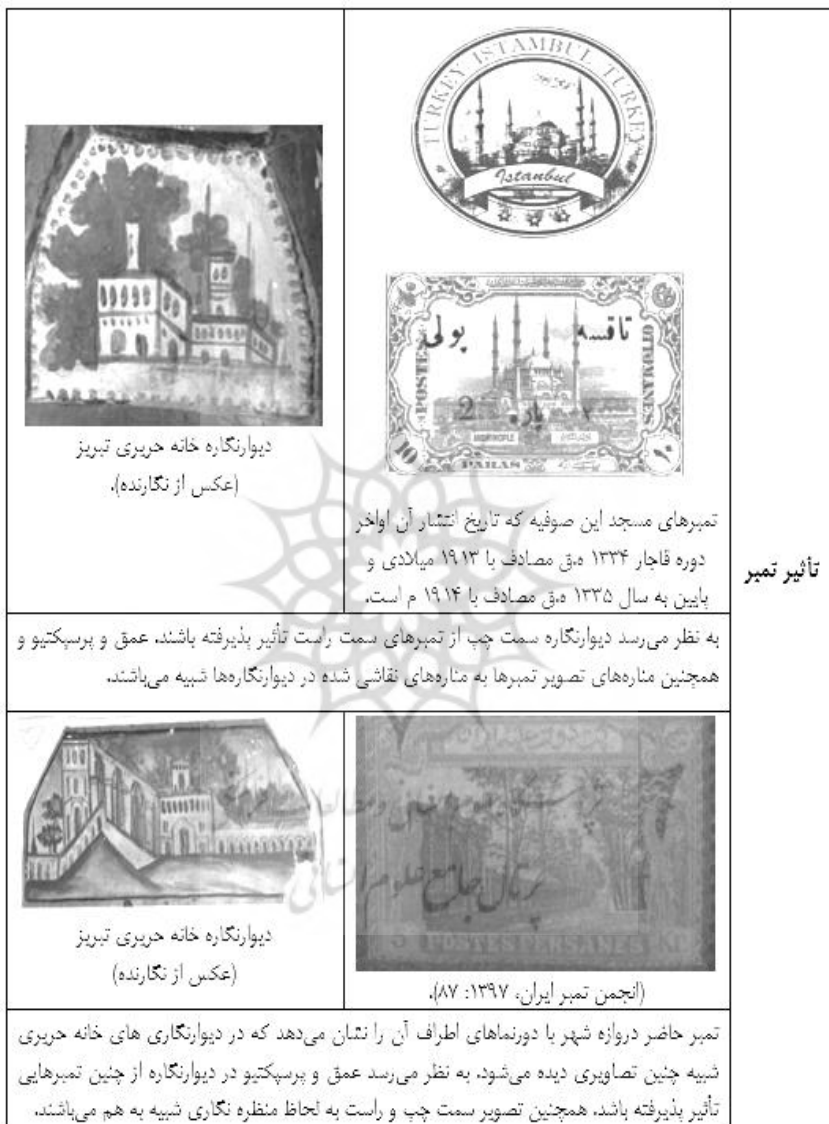 تأثیر تمبر
TURKEY ISTAMBUL TURKEY
Istanbul
تاقسه پولی
POSTES OTTOMANES
2 پاره ۲
ANDRINOPLE
10 PARAS ۱۰
تمبرهای مسجد این صوفیه که تاریخ انتشار آن اواخر
دوره قاجار ۱۳۳۴ ه.ق مصادف با ۱۹۱۳ میلادی و
پایین به سال ۱۳۳۵ ه.ق مصادف با ۱۹۱۴ م است.
دیوارنگاره خانه حریری تبریز
(عکس از نگارنده).
به نظر می‌رسد دیوارنگاره سمت چپ از تمبرهای سمت راست تأثیر پذیرفته باشند. عمق و پرسپکتیو و
همچنین مناره‌های تصویر تمبرها به مناره‌های نقاشی شده در دیوارنگاره‌ها شبیه می‌باشند.
پرتال جامع علوم انسانی
5 POSTES PERSANES KR
(انجمن تمبر ایران، ۱۳۹۷: ۸۷).
دیوارنگاره خانه حریری تبریز
(عکس از نگارنده)
تمبر حاضر دروازه شهر با دورنماهای اطراف آن را نشان می‌دهد که در دیوارنگاری های خانه حریری
شبیه چنین تصاویری دیده می‌شود. به نظر می‌رسد عمق و پرسپکتیو در دیوارنگاره از چنین تمبرهایی
تأثیر پذیرفته باشد. همچنین تصویر سمت چپ و راست به لحاظ منظره نگاری شبیه به هم می‌باشند.